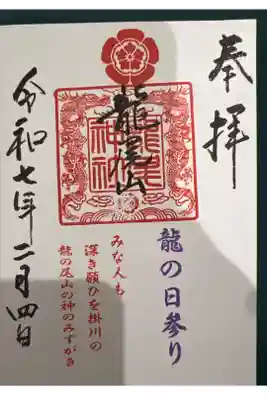 奉拝
龍の日参り
龍尾神社
龍尾山
みな人も
深き願ひを掛川の
龍の尾山の神のみずがき
令和七年二月四日